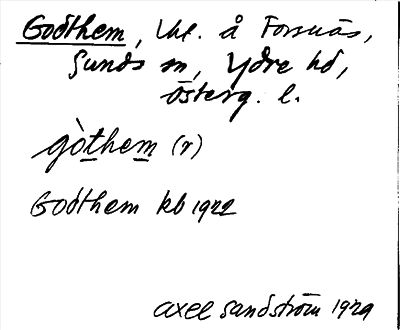 Godthem, Lht. å Forsnäs,
Sunds sn, Ydre hd,
Österg. l.
gòthem (r)
Godthem kb 1922
Axel Sandström 1929